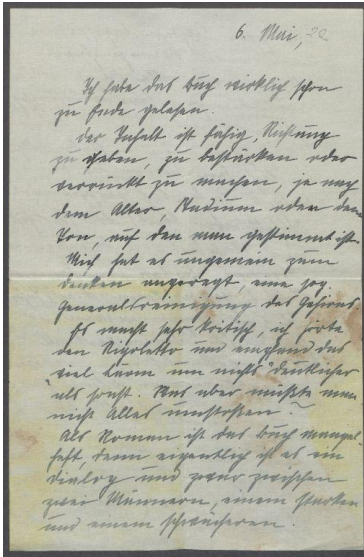 6. Mai, 20
Ich habe das Buch wirklich schon
zu Ende gelesen.
Der Inhalt ist fähig, Richtung
zu geben, zu bestärken oder
verrückt zu machen, je nach
dem Alter, Stadium oder dem
Ton, auf den man gestimmt ist.
Mich hat es ungemein zum
denken angeregt, eine sog.
Generalsreinigung des Gehirns
Es macht sehr kritisch, ich hörte
den Rigoletto und empfand das
"viel Lärm um nichts" deutlicher
als sonst. Was aber müßte man
nicht Alles umstoßen?
Als Roman ist das Buch mangel-
haft, denn eigentlich ist es ein
Dialog und zwar zwischen
zwei Männern, einem starken
und einem schwächeren.